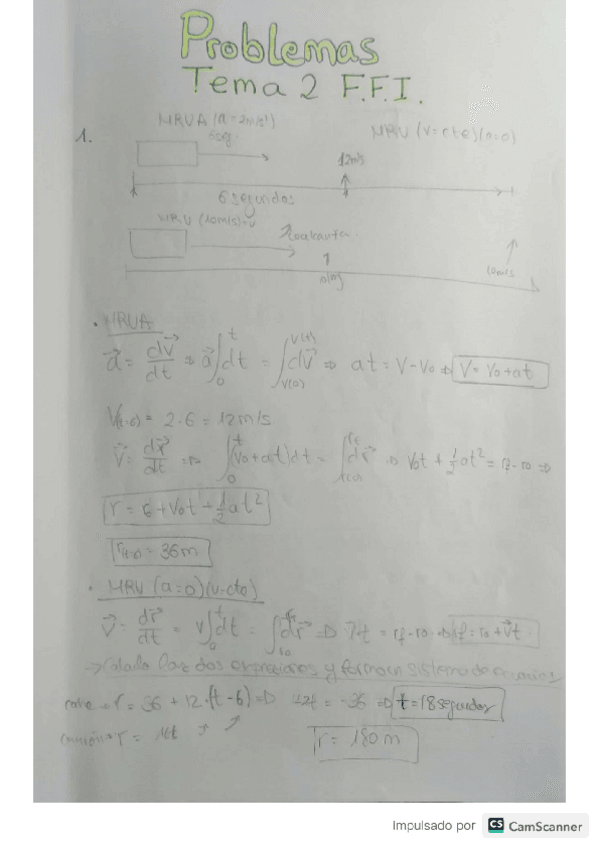 Problemas
Tema 2 F.F.I.
1.
MRUA (a=2m/s²)
6seg.
MRU (v=cte)(a=0)
12m/s
6 segundos
MRU (10m/s)
10m/s
• MRUA
a⃗ = dv⃗/dt ⇒ a⃗∫₀ᵗdt = ∫_{v(0)}^{v(t)} dv⃗ ⇒ at = v-v₀ ⇒ v = v₀+at
V(t=6) = 2·6 = 12m/s
v⃗ = dr⃗/dt ⇒ ∫₀ᵗ(v₀+at)dt = ∫dr⃗ ⇒ v₀t + ½at² = rf-r₀ ⇒
r = r₀+v₀t+½at²
r(t=6) = 36m
• MRU (a=0)(v=cte)
v⃗ = dr⃗/dt = v∫₀ᵗdt = ∫dr⃗ ⇒ v⃗t = rf-r₀ ⇒ rf = r₀+v⃗t
las dos expresiones y forman sistema de ecuaciones
r = 36 + 12·(t-6) ⇒ = -36 ⇒ t = 18segundos
camión ⇒ r = 10t
r = 180m
Impulsado por CS CamScanner